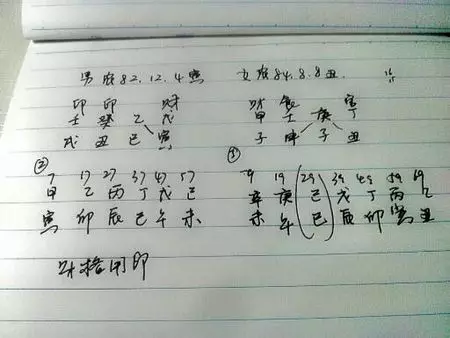 男农82.12.4寅 女农84.8.8丑.
印 印 财 财 食 官
壬 癸 乙 戊 甲 壬 庚 丁
戌 丑 巳 寅 子 申 子 丑
② ①
7 17 27 37 47 57 9 19 29 39 49 59 69
甲 乙 丙 丁 戊 己 辛 庚 己 戊 丁 丙 乙
寅 卯 辰 巳 午 未 未 午 巳 辰 卯 寅 丑
财格用印